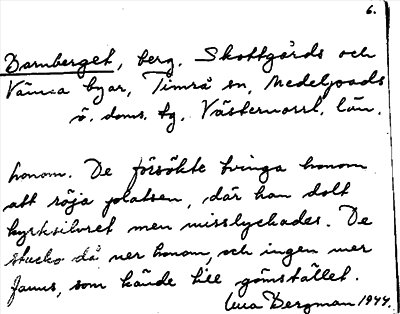 6.
Barnberget, berg. Skottgårds och
Vänna byar, Timrå sn, Medelpads
ö. doms. tg. Västernorrl. län.
honom. De försökte tvinga honom
att röja platsen, där han dolt
kyrksilvret men misslyckades. De
stucko då ner honom, och ingen mer
fanns, som kände till gömstället.
Bergman 1944.